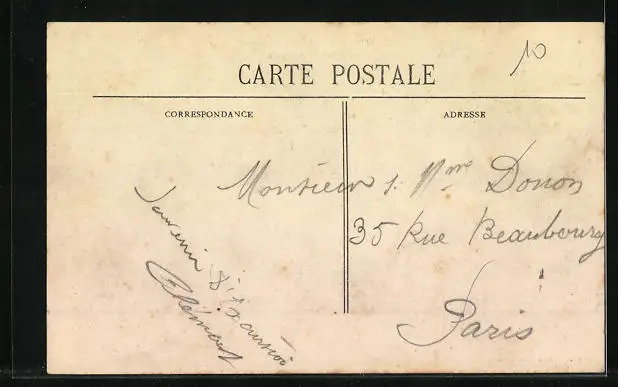 10
CARTE POSTALE
CORRESPONDANCE
ADRESSE
Monsieur s. Mme Donon
35 Rue Beaubourg
Paris
Souvenir d'Excursion
Clément